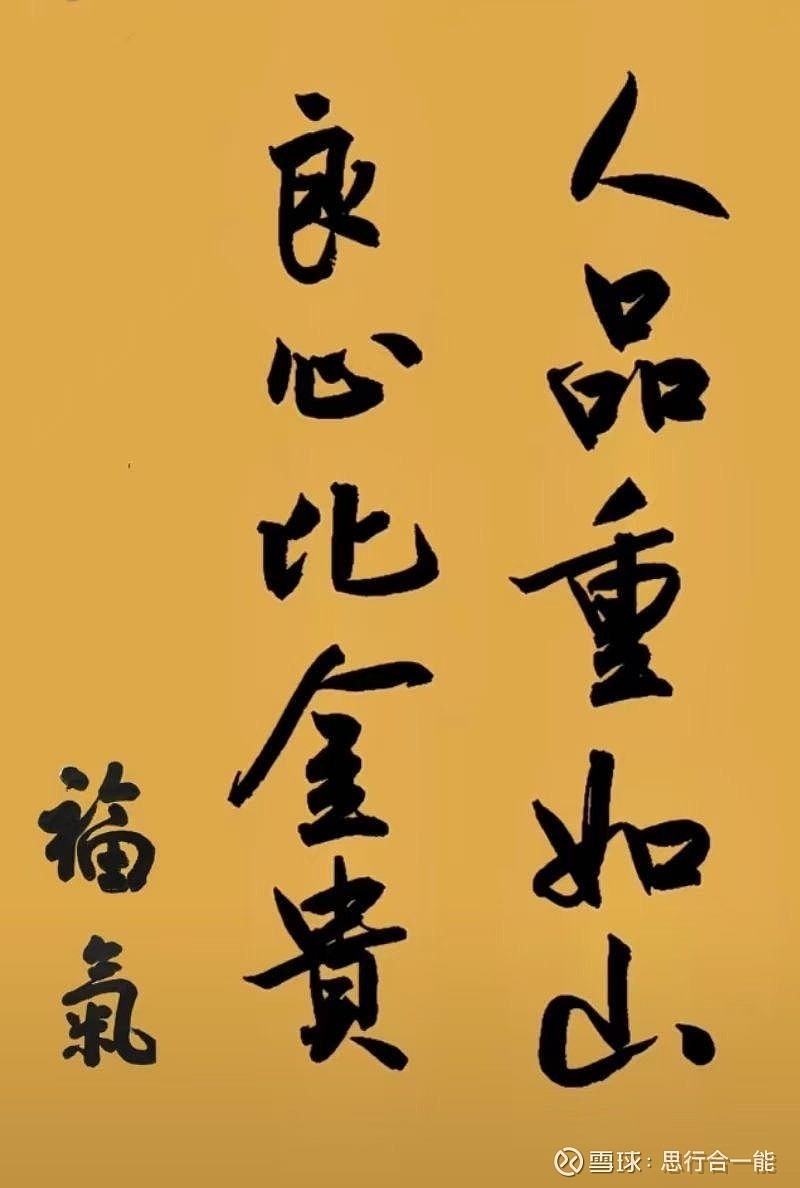 人品重如山
良心比金貴
福氣
雪球：思行合一能